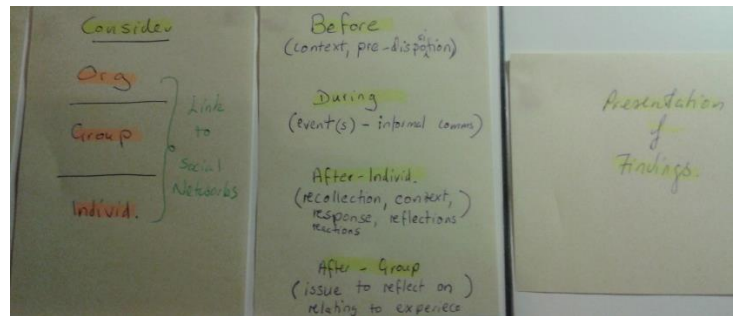 Consider
Org
Group
Individ.
Link
to
Social
Networks
Before
(context, pre-dispotion)
During
(event(s) - informal comms)
After-Individ.
(recollection, context,
response, reflections)
After - Group
(issue to reflect on)
relating to experiece
Presentation
of
Findings.